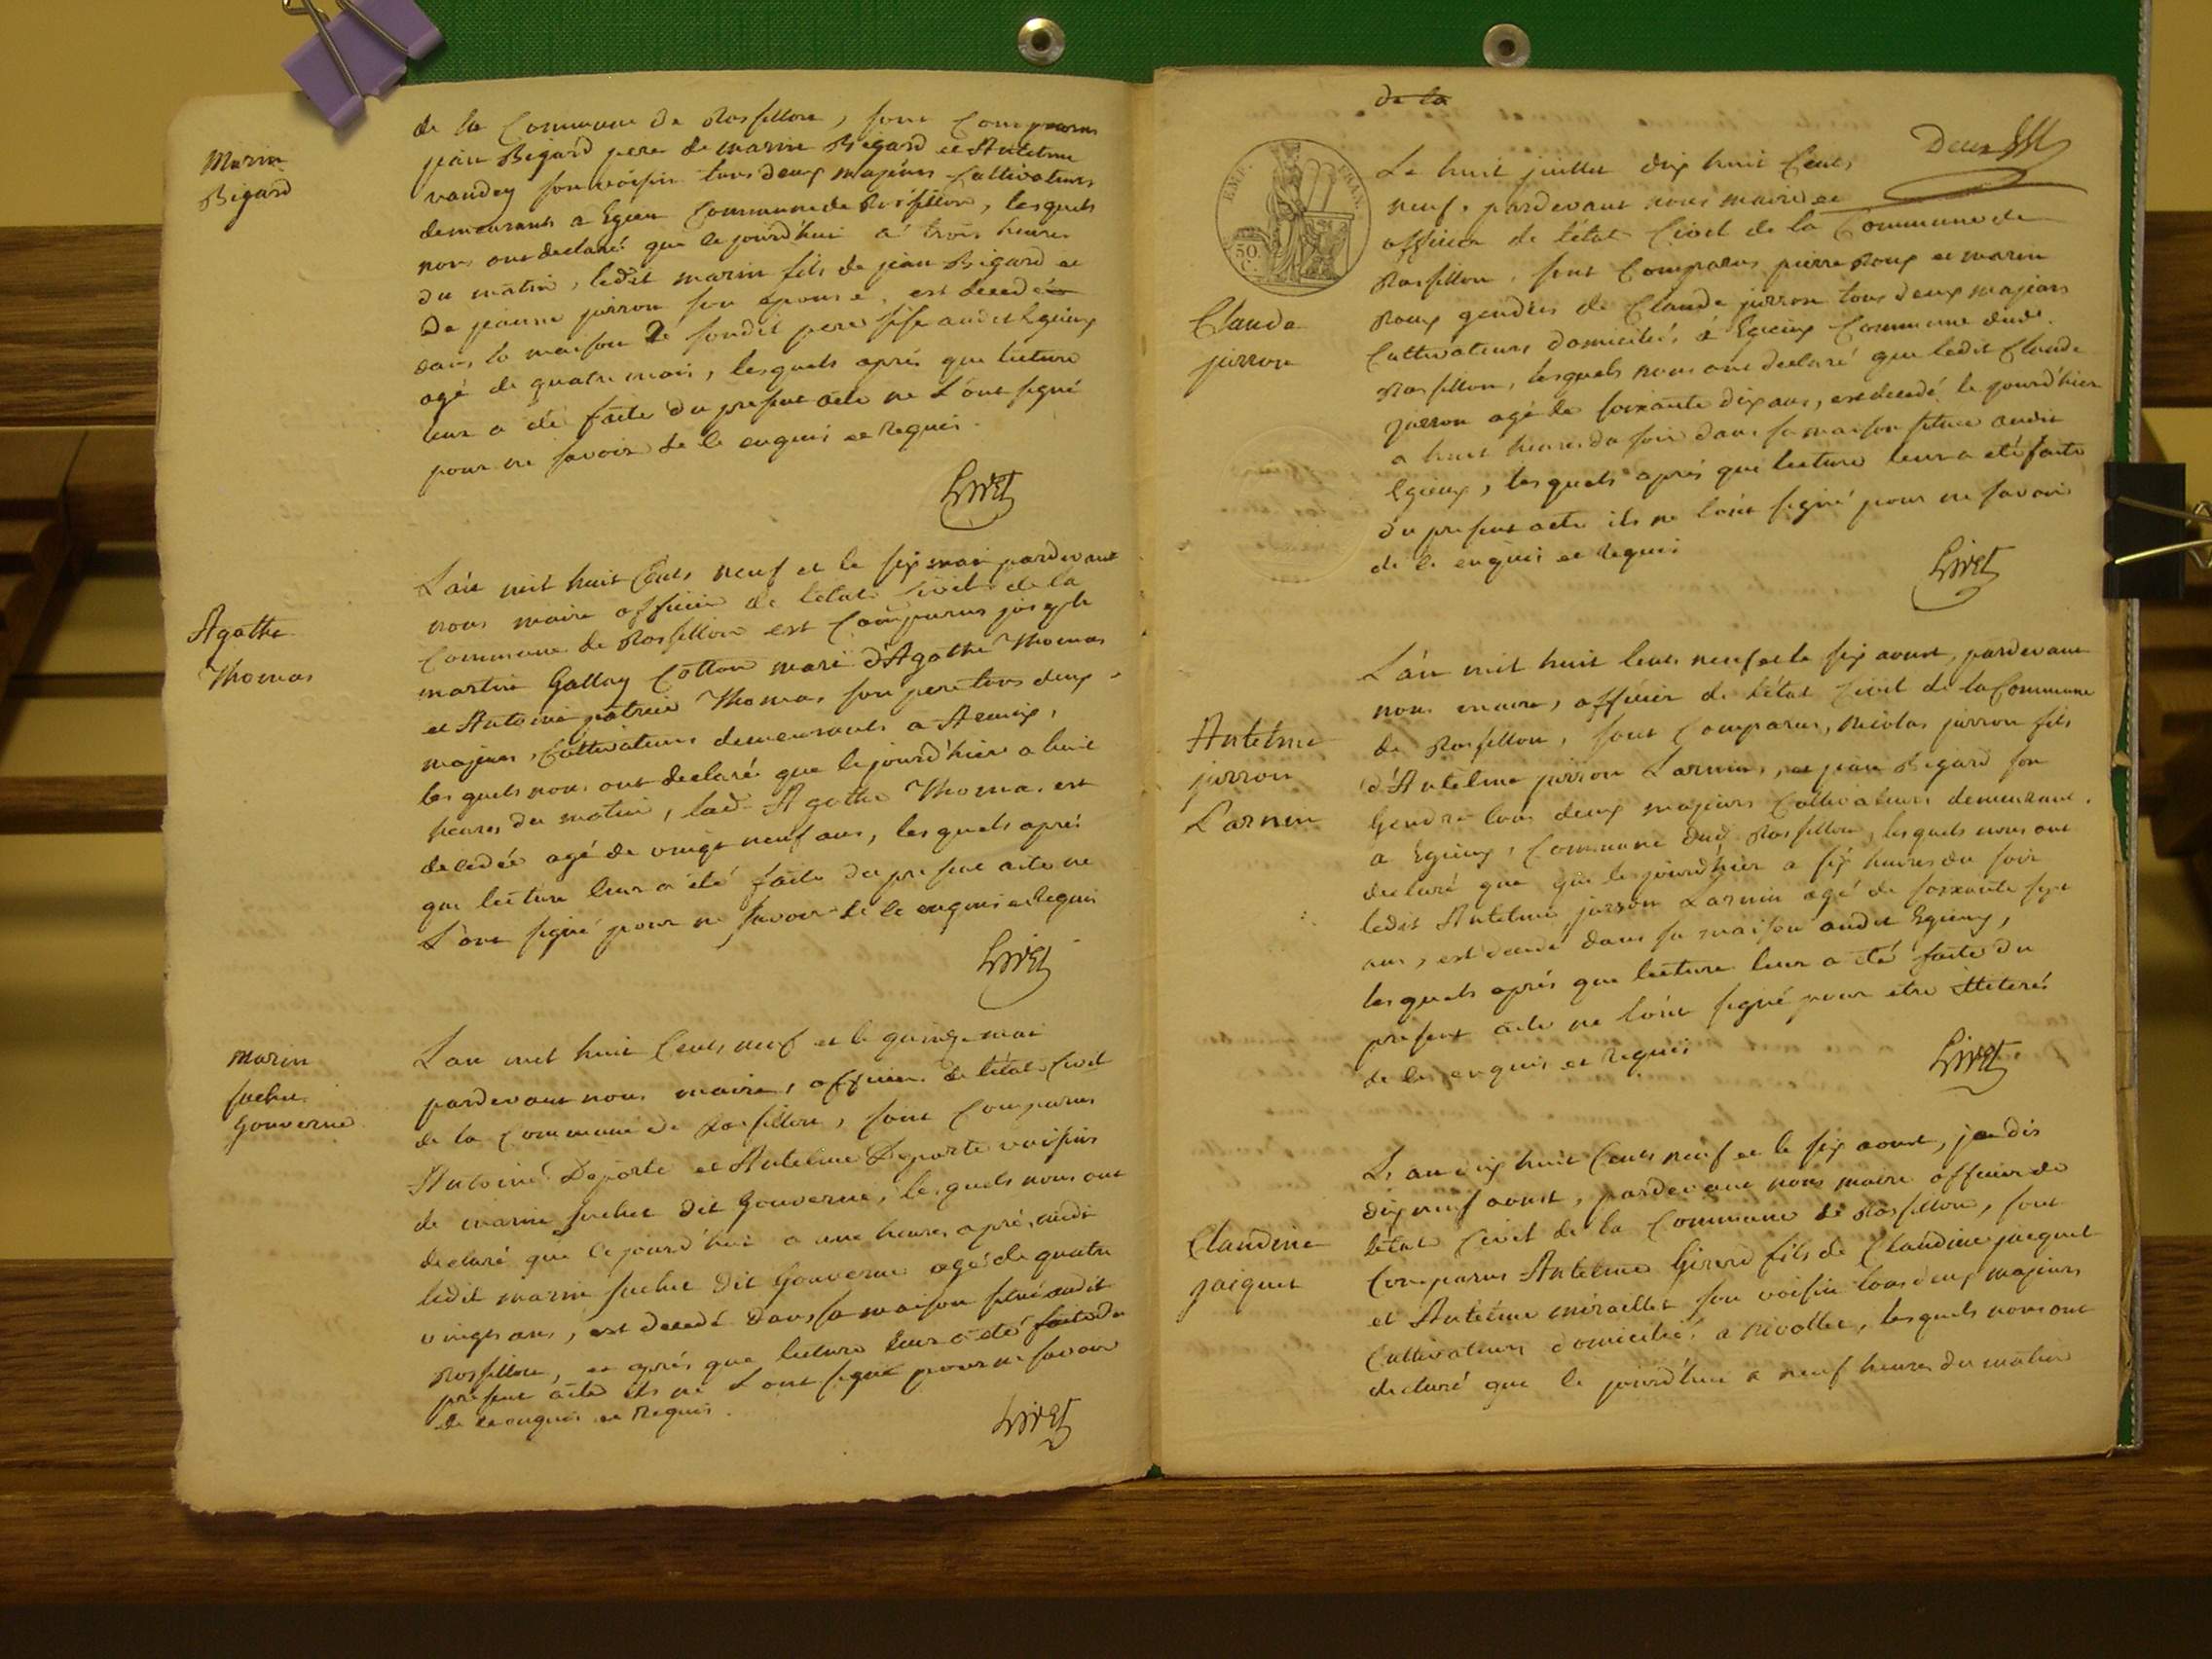 de la Commune de Rossillon, sont Comparus
Marin
Bigard
jean Bigard pere de marin Bigard et Antelme
vandey son voisin tous deux majeurs Cultivateurs
demeurants a Egieu Commune de Rossillon, lesquels
nous ont declaré que le jourd'hui a trois heures
du matin, ledit marin fils de jean Bigard et
de jeanne jurron son epouse, est decedé
dans la maison de sondit pere sise audit Egieux
agé de quatre mois, lesquels aprés que lecture
leur a été faite du present acte ne L'ont signé
pour ne savoir de le enquis et requis.
Livet
Agathe
Thomas
L'an mil huit Cents neuf et le six mai pardevant
nous maire officier de l'etat Civil de la
Commune de Rossillon est Comparus joseph
martin Gallay Cotton mari d'Agathe Thomas
et Antoine patrice Thomas son pere tous deux
majeurs, Cultivateurs demeurants a
lesquels nous ont declaré que le jourd'hier a huit
heures du matin, lad. Agathe Thomas est
decedée agé de vingt neuf ans, lesquels aprés
que lecture leur a été faite du present acte ne
L'ont signé pour ne savoir de le enquis et Requis
Livet
Marin
suchet
Gouverne
L'an mil huit Cents neuf et le quinze mai
pardevant nous maire, officier de l'etat Civil
de la Commune de Rossillon, sont Comparus
Antoine Deporte et Antelme Deporte voisins
de marin suchet dit Gouverne, lesquels nous ont
declaré que le jourd'hui a une heures aprés midi
ledit marin suchet dit Gouverne agé de quatre
vingts ans, est decedé dans sa maison situé audit
Rossillon, et aprés que lecture leur a été faite du
present acte ils ne L'ont signé pour ne savoir
de le enquis et Requis.
Livet
de la
EMP. FRAN.
50 C.
Le huit juillet dix huit Cents
neuf, pardevant nous maire et
officier de l'etat Civil de la Commune de
Rossillon, sont Comparus pierre Roux et marin
Claude
jurron
Roux gendres de Claude jurron tous deux majeurs
Cultivateurs domiciliés à Egieux Commune dud.
Rossillon, lesquels nous ont declaré que ledit Claude
jurron agé de soixante dix ans, est decedé le jourd'hier
a huit heures du soir dans sa maison située audit
Egieux, lesquels aprés que lecture leur a été faite
du present acte ils ne l'ont signé pour ne savoir
de le enquis et requis
Livet
Antelme
jurron
Larnin
L'an mil huit Cents neuf et le six aoust, pardevant
nous maire, officier de l'état Civil de la Commune
de Rossillon, sont Comparus, Nicolas jurron fils
d'Antelme jurron Larnin, et jean Bigard son
Gendre tous deux majeurs Cultivateurs demeurant
a Egieux, Commune dud. Rossillon, lesquels nous ont
declaré que que le jourd'hier a six heures du soir
ledit Antelme jurron Larnin agé de soixante sept
ans, est decedé dans sa maison audit Egieux,
lesquels aprés que lecture leur a été faite du
present acte ne l'ont signé pour etre illiterés
de les enquis et requis
Livet
Claudine
jacquet
L'an dix huit Cents neuf et le six aoust, je dis
dix neuf aoust, pardevant nous maire officier de
l'etat Civil de la Commune de Rossillon, sont
Comparus Antelme Girerd fils de Claudine jacquet
et Antelme miraillet son voisin tous deux majeurs
Cultivateurs domiciliés a Rivollet, lesquels nous ont
declaré que le jourd'hui a neuf heures du matin